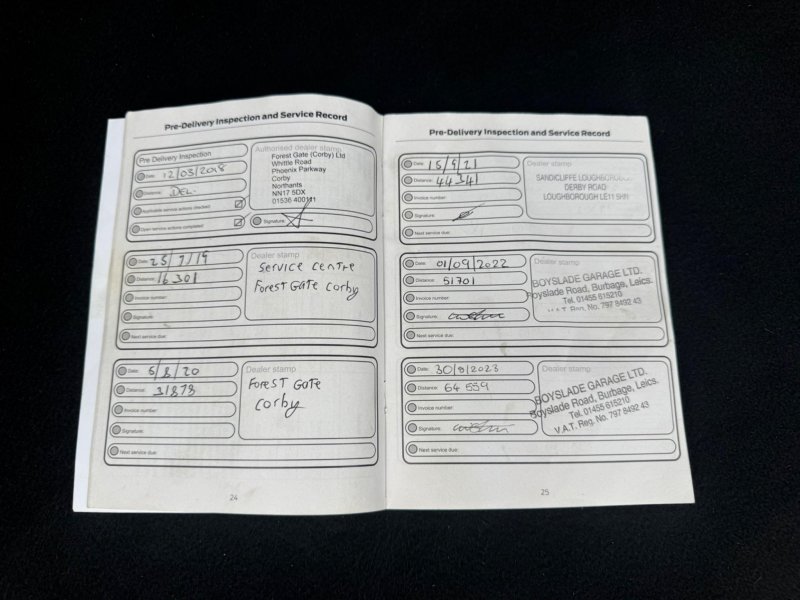 Pre-Delivery Inspection and Service Record
Pre Delivery Inspection
Date: 12/03/2018
Distance: DEL.
Applicable service actions checked
Open service actions completed
Authorised dealer stamp
Forest Gate (Corby) Ltd
Whittle Road
Phoenix Parkway
Corby
Northants
NN17 5DX
01536 400111
Signature:
Date: 25/7/19
Distance: 16301
Invoice number:
Signature:
Next service due:
Dealer stamp
Service centre
Forest Gate Corby
Date: 5/8/20
Distance: 31878
Invoice number:
Signature:
Next service due:
Dealer stamp
Forest Gate
Corby
24
Pre-Delivery Inspection and Service Record
Date: 15/9/21
Distance: 44341
Invoice number:
Signature:
Next service due:
Dealer stamp
SANDICLIFFE LOUGHBOROUGH
DERBY ROAD
LOUGHBOROUGH LE11 5HN
Date: 01/09/2022
Distance: 51701
Invoice number:
Signature:
Next service due:
Dealer stamp
BOYSLADE GARAGE LTD.
Boyslade Road, Burbage, Leics.
Tel. 01455 615210
V.A.T. Reg. No. 797 8492 43
Date: 30/8/2023
Distance: 64 559
Invoice number:
Signature:
Next service due:
Dealer stamp
BOYSLADE GARAGE LTD.
Boyslade Road, Burbage, Leics.
Tel. 01455 615210
V.A.T. Reg. No. 797 8492 43
25